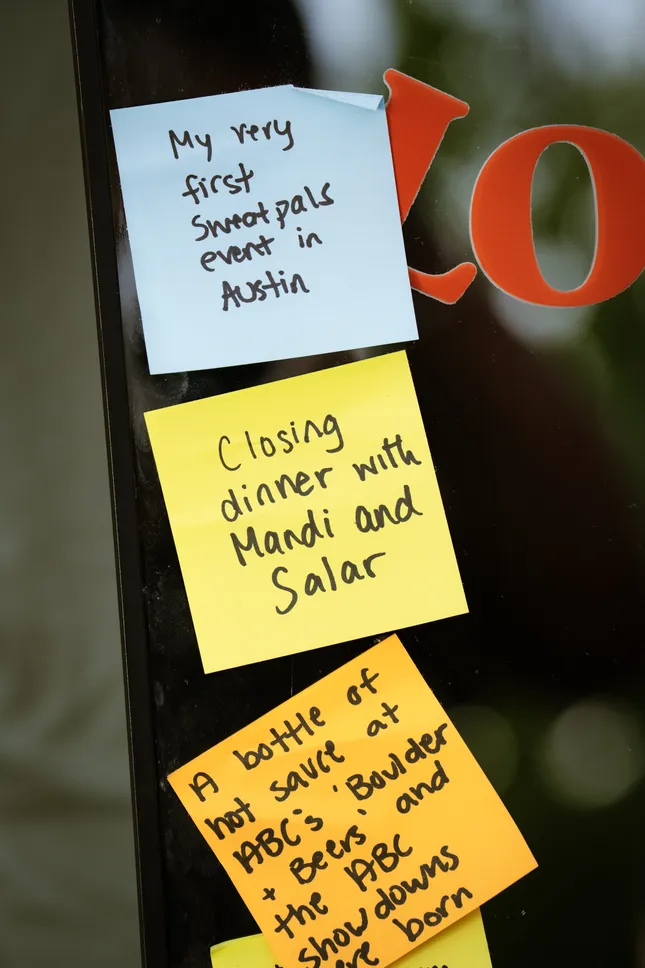 My very
first
Sweatpals
event in
Austin
Closing
dinner with
Mandi and
Salar
A bottle of
hot sauce at
ABC's 'Boulder
+ Beers' and
the ABC
showdowns
ere born